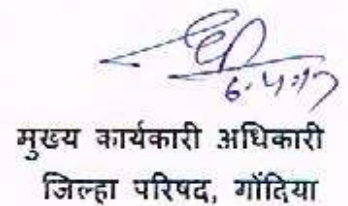 6.4.17
मुख्य कार्यकारी अधिकारी
जिल्हा परिषद, गोंदिया